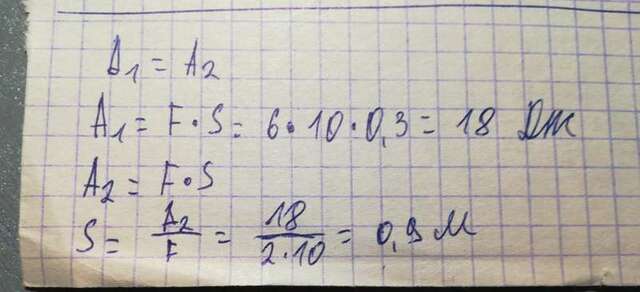 A₁ = A₂
A₁ = F · S = 6 · 10 · 0,3 = 18 Дж
A₂ = F · S
S = A₂/F = 18/2·10 = 0,9 м